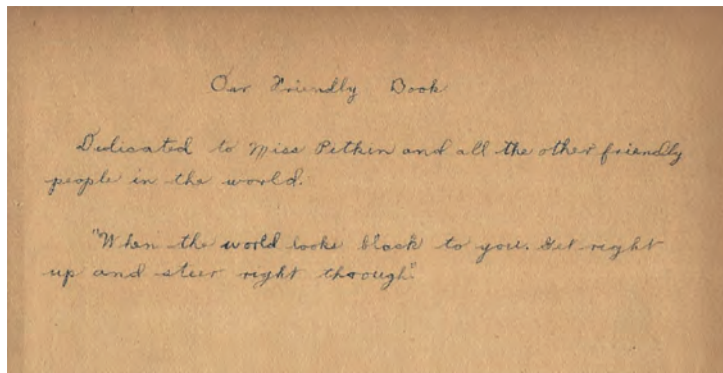 Our Friendly Book
Dedicated to Miss Pitkin and all the other friendly
people in the world.
"When the world looks black to you. Get right
up and steer right through."